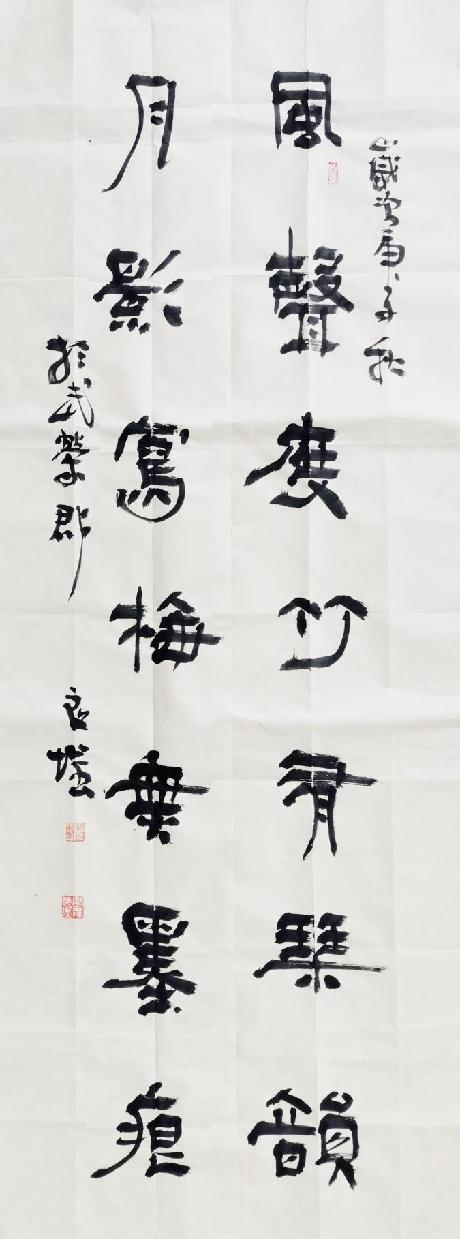 歲次庚子秋
風聲度竹有琴韻
月影寫梅無墨痕
於武榮郡
良